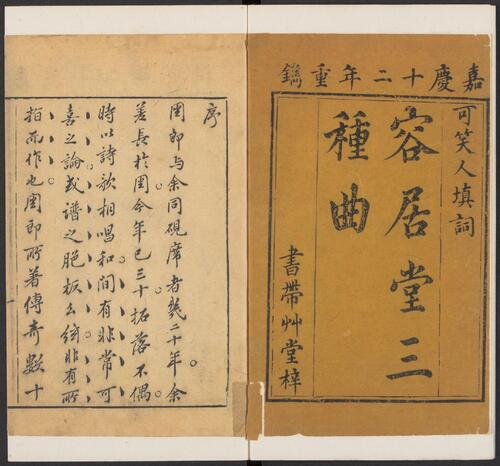 嘉慶十二年重鐫
可笑人填詞
容居堂三
種曲
書帶艸堂梓
序
因即与余同硯席者幾二十年余
差長於因今年已三十拓落不偶
時以詩歌相唱和間有非常可
喜之論或譜之肥板么絃非有所
指而作也因即所著傳奇數十